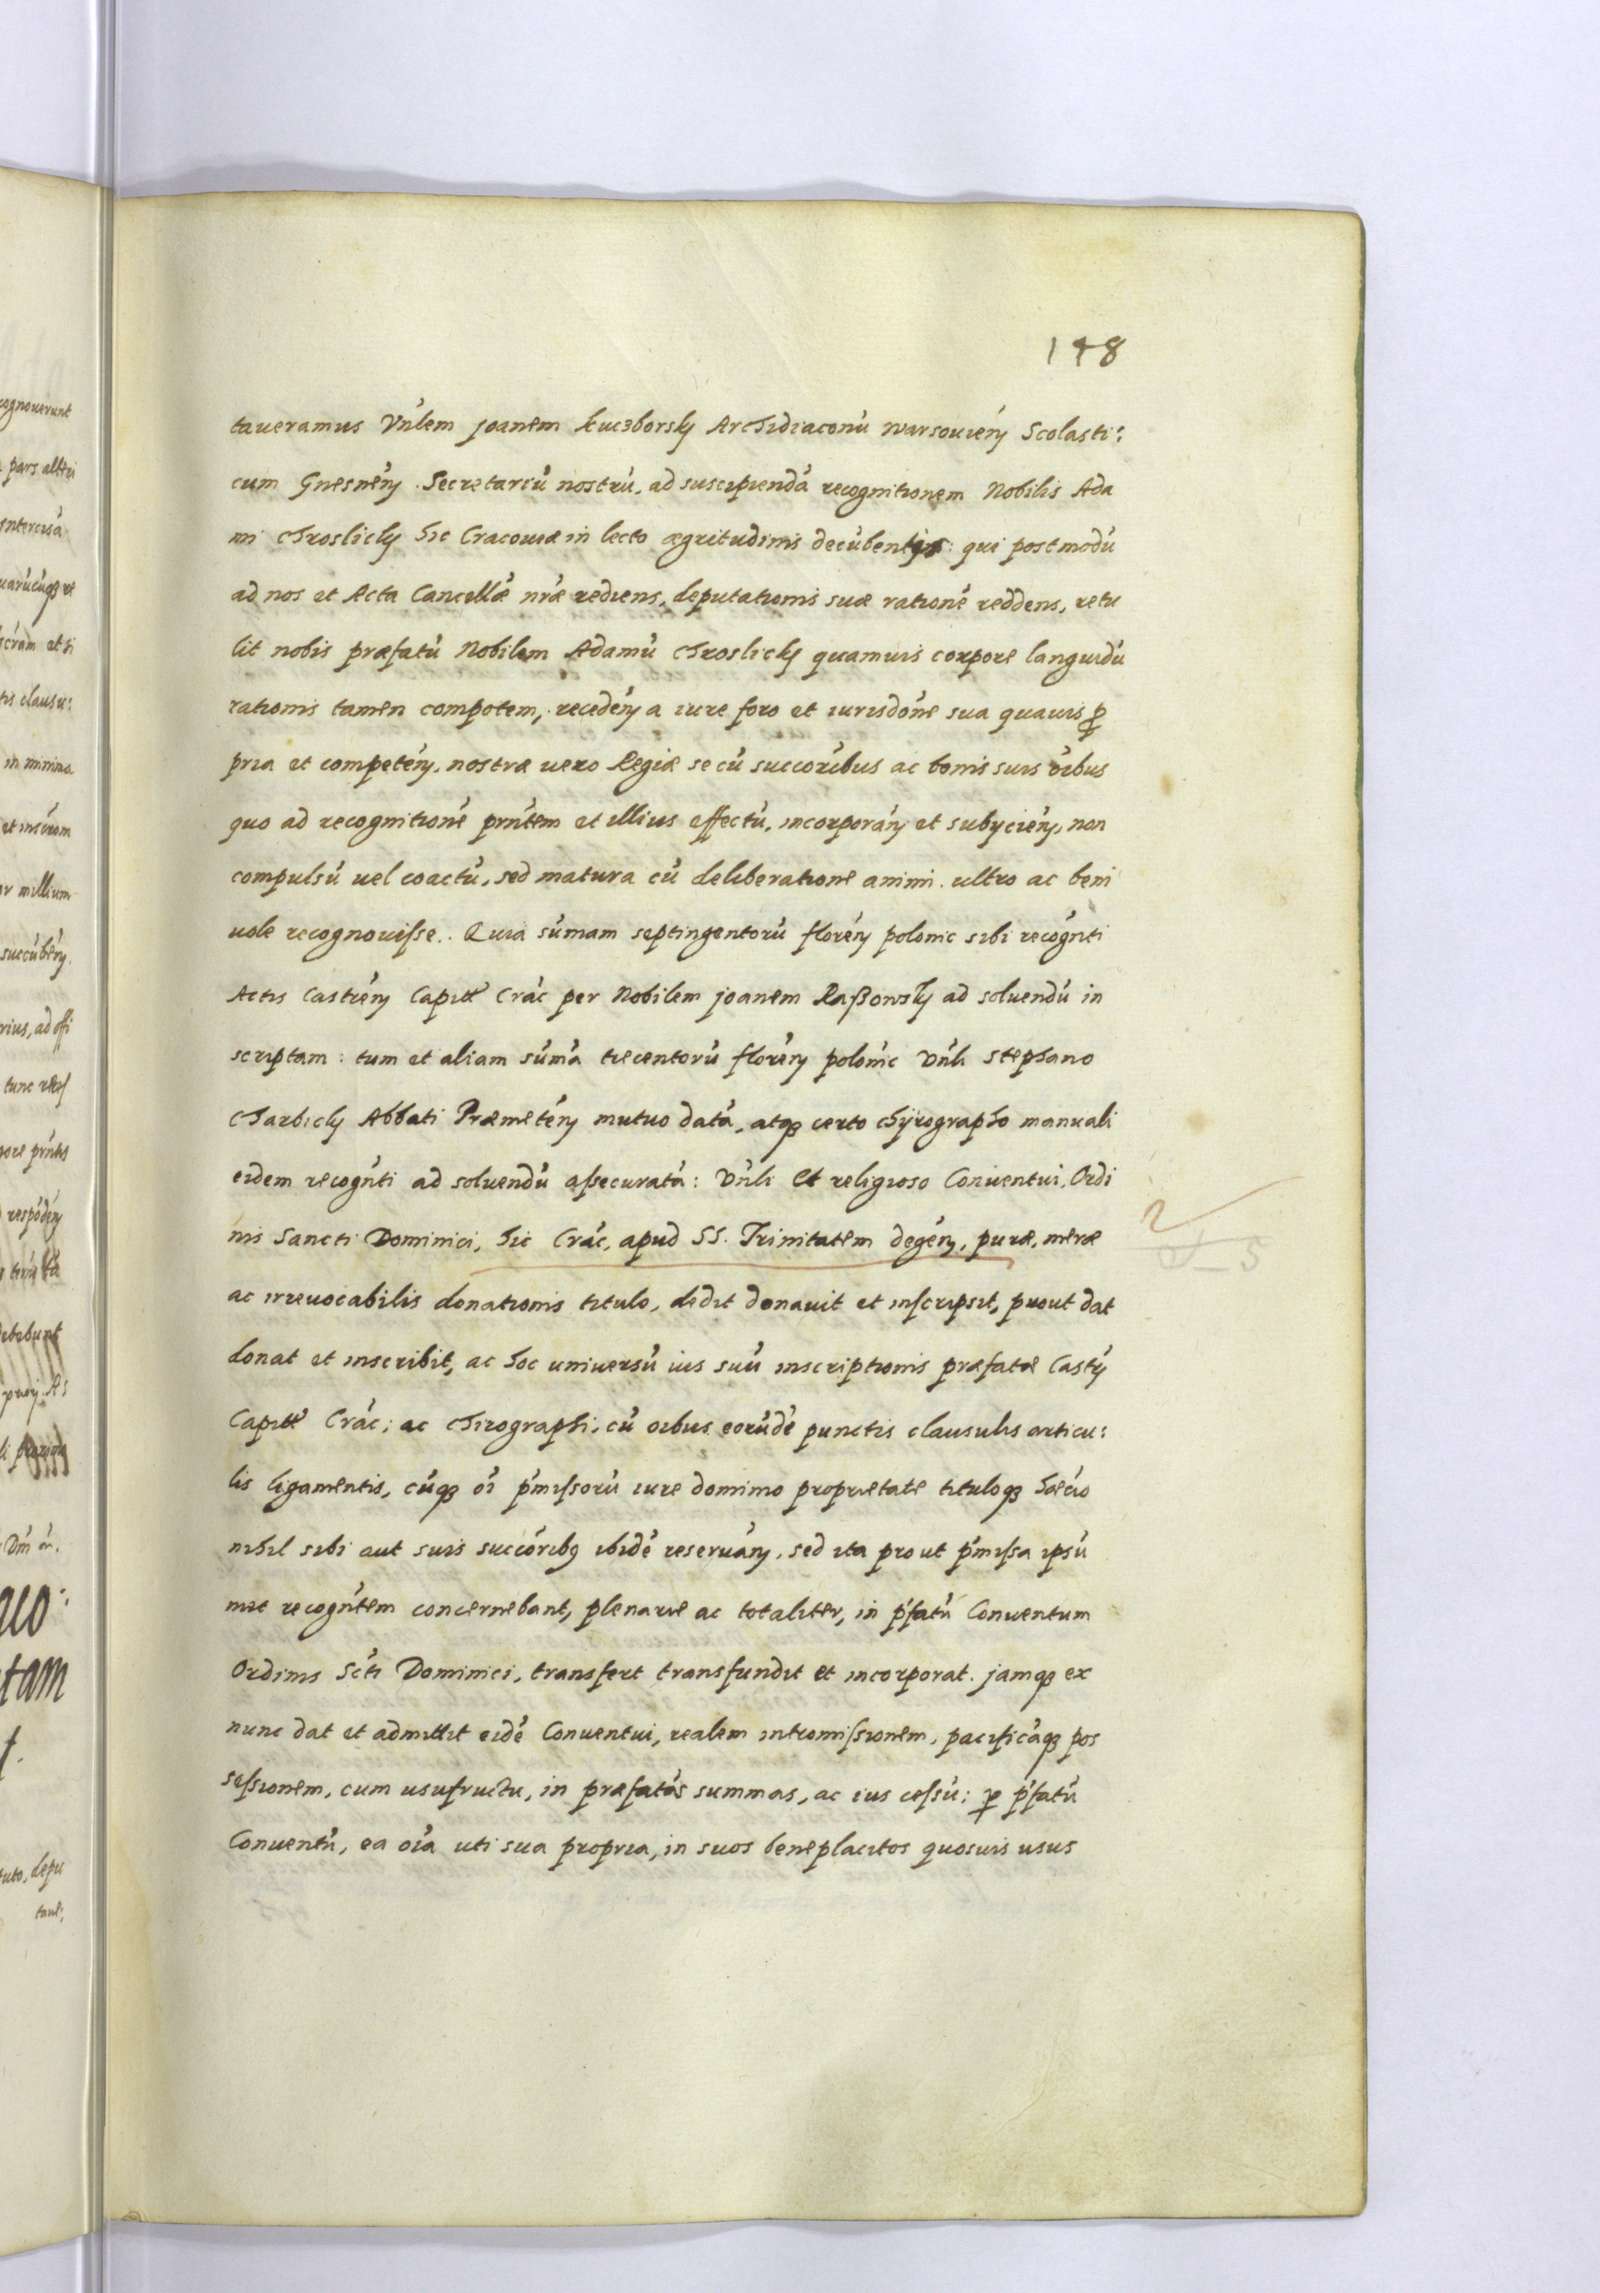 148
taueramus Vńlem Joanem Kuczborsky Archidiaconú Warsouień Scolasti:
cum Gnesneń Secretariú nostrú, ad suscipiendá recognitionem Nobilis Ada
mi Chroslicky hic Cracouiæ in lecto ægritudinis decúbentis: qui postmodú
ad nos et Acta Cancellæ nræ rediens, deputationis suæ rationé reddens, retu
lit nobis præfatú Nobilem Adamú Chroslicky quamuis corpore languidú
rationis tamen compotem, recedeń a iure foro et iurisdóne sua quauis ꝓ
pria et competeń, nostræ uero Regiæ se cú succoribus ac bonis suis óibus
quo ad recognitioné prńtem et illius effectú, incorporáń et subycień, non
compulsú uel coactú, sed matura cú deliberatione animi. ultro ac beni
uole recognouisse. Quia súmam septingentorú floreń polonic sibi recogńti
Actis Castreń Capitt Crác per Nobilem Joanem Raßowsky ad soluendú in
scriptam: tum et aliam súmá trecentorú floreń polonic Vńli Stephano
Charbicky Abbati Præmeteń mutuo datá, atqꝫ certo chyrographo manuali
eidem recogńti ad soluendú assecuratá: Vńli et religioso Conuentui, Ordi
nis Sancti Dominici, hic Crác, apud SS. Trinitatem degeń, puræ, meræ
ac irreuocabilis donationis titulo, dedit donauit et inscripsit, prout dat
donat et inscribit, ac hoc uniuersú ius suú inscriptionis præfatæ Castr
Capitt Crác; ac chirographi, cú oibus eorúdé punctis clausulis articu:
lis ligamentis, cúqꝫ oí pmissorú iure dominio proprietate tituloqꝫ hæcio
nihil sibi aut suis succoribꝫ ibidé reseruáń, sed ita prout pmissa ipsú
met recogńtem concernebant, plenarie ac totaliter, in pfatú Conuentum
Ordinis Scti Dominici, transfert transfundit et incorporat. Jamqꝫ ex
nunc dat et admittit eidé Conuentui, realem intromissionem, pacificáqꝫ pos
sessionem, cum usufructu, in præfatas summas, ac ius cessú; ꝑ pfatú
Conuentú, ea oia uti sua propria, in suos beneplacitos quosuis usus